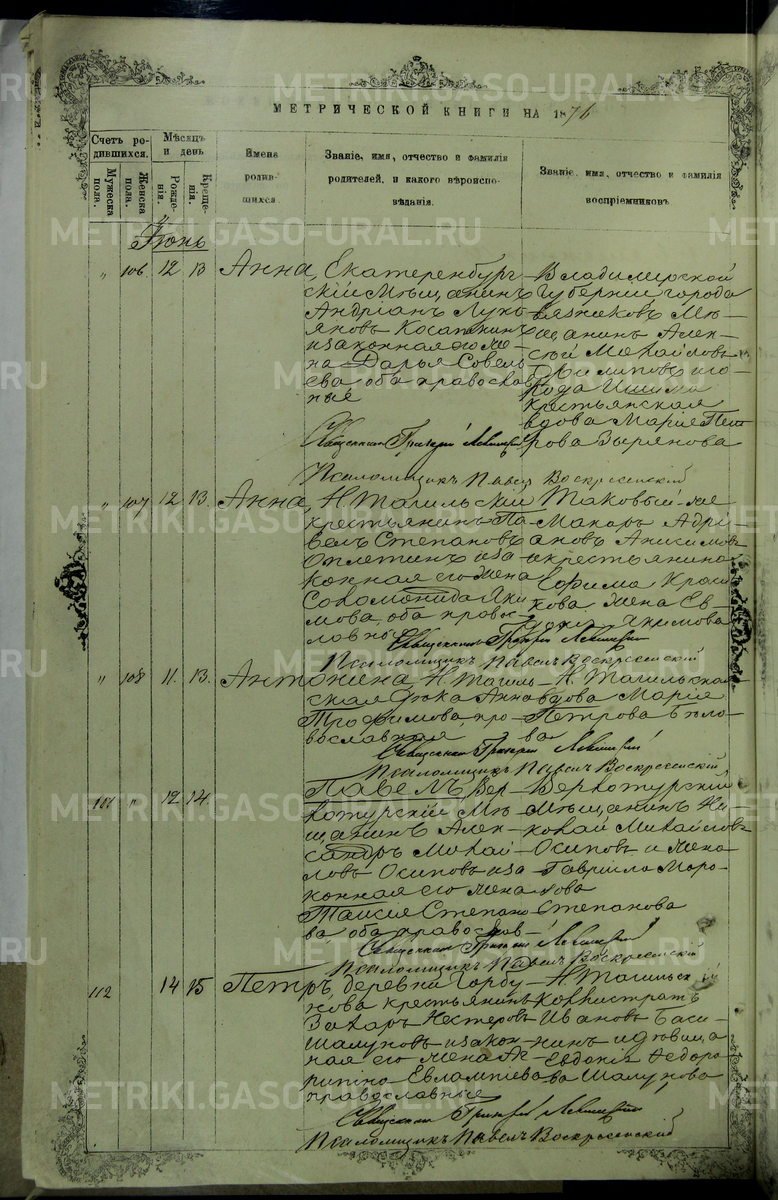 METRIKI.GASO-URAL.RU
МЕТРИЧЕСКОЙ КНИГИ НА 1876
Счетъ родившихся.
Мужеска пола.
Женска пола.
Мѣсяцъ и день
Рожденія.
Крещенія.
Имена родившихся
Званіе, имя, отчество и фамилія родителей, и какого вѣроисповѣданія.
Званіе, имя, отчество и фамилія воспріемниковъ
Іюнь
" 106 12 13 Анна,
Екатеренбург-
скій Мѣщанинъ
Андріанъ Лукь-
яновъ
изаконная его же-
на Дарья Совель
ева оба православ
ные
Владимірской
Губерніи города
Вязниковъ Мѣ-
щанинъ Алек-
сѣй Михайловъ
Филиповъ и го-
рода Ишима
крестьянская
вдова Марія Пет
рова Зырянова
Священникъ Григорій Левицкій
Псаломщикъ Павелъ Воскресенскій
" 107 12 13. Анна,
Н. Тагильскій
крестьянинъ Па-
велъ Степановъ
Оплетинъ иза
конная его жена
Соломонида Яки
мова, оба правос-
лавные
Таковый-же
Макаръ Адрі-
ановъ Анисимовъ
и крестьянина
Ефима
кова жена Ев-
Якимова
Священникъ Григорій Левицкій
Псаломщикъ Павелъ Воскресенскій
" 108 11. 13. Антонина
Н. Тагиль-
ская дѣвка Анна
Трофимова, пра-
вославная
Н. Тагильская
вдова Марія
Петрова Бѣло-
ва
Священникъ Григорій Левицкій
Псаломщикъ Павелъ Воскресенскій
" 12 14. Павелъ
Вер-
хотурскій Мѣ-
щанинъ Алек-
сандръ Михай-
ловъ Осиповъ иза
конная его жена
Таисія Степано
ва, оба православ-
Верхотурскій
Мѣщанинъ Ни-
колай Михайловъ
Осиповъ и жена
Гавріила Моро-
зова
Степанова
Священникъ Григорій Левицкій
Псаломщикъ Павелъ Воскресенскій
112 14 15 Петръ,
деревни Горбу-
нова крестьянинъ
Захаръ Нестеровъ
Шалуновъ изакон-
ная его жена Аг-
рипина Евлампіева
православные
Н. Тагильск
Ивановъ
нинъ и дѣвица
Евдокія Федоро
ва Шалунова
Священникъ Григорій Левицкій
Псаломщикъ Павелъ Воскресенскій